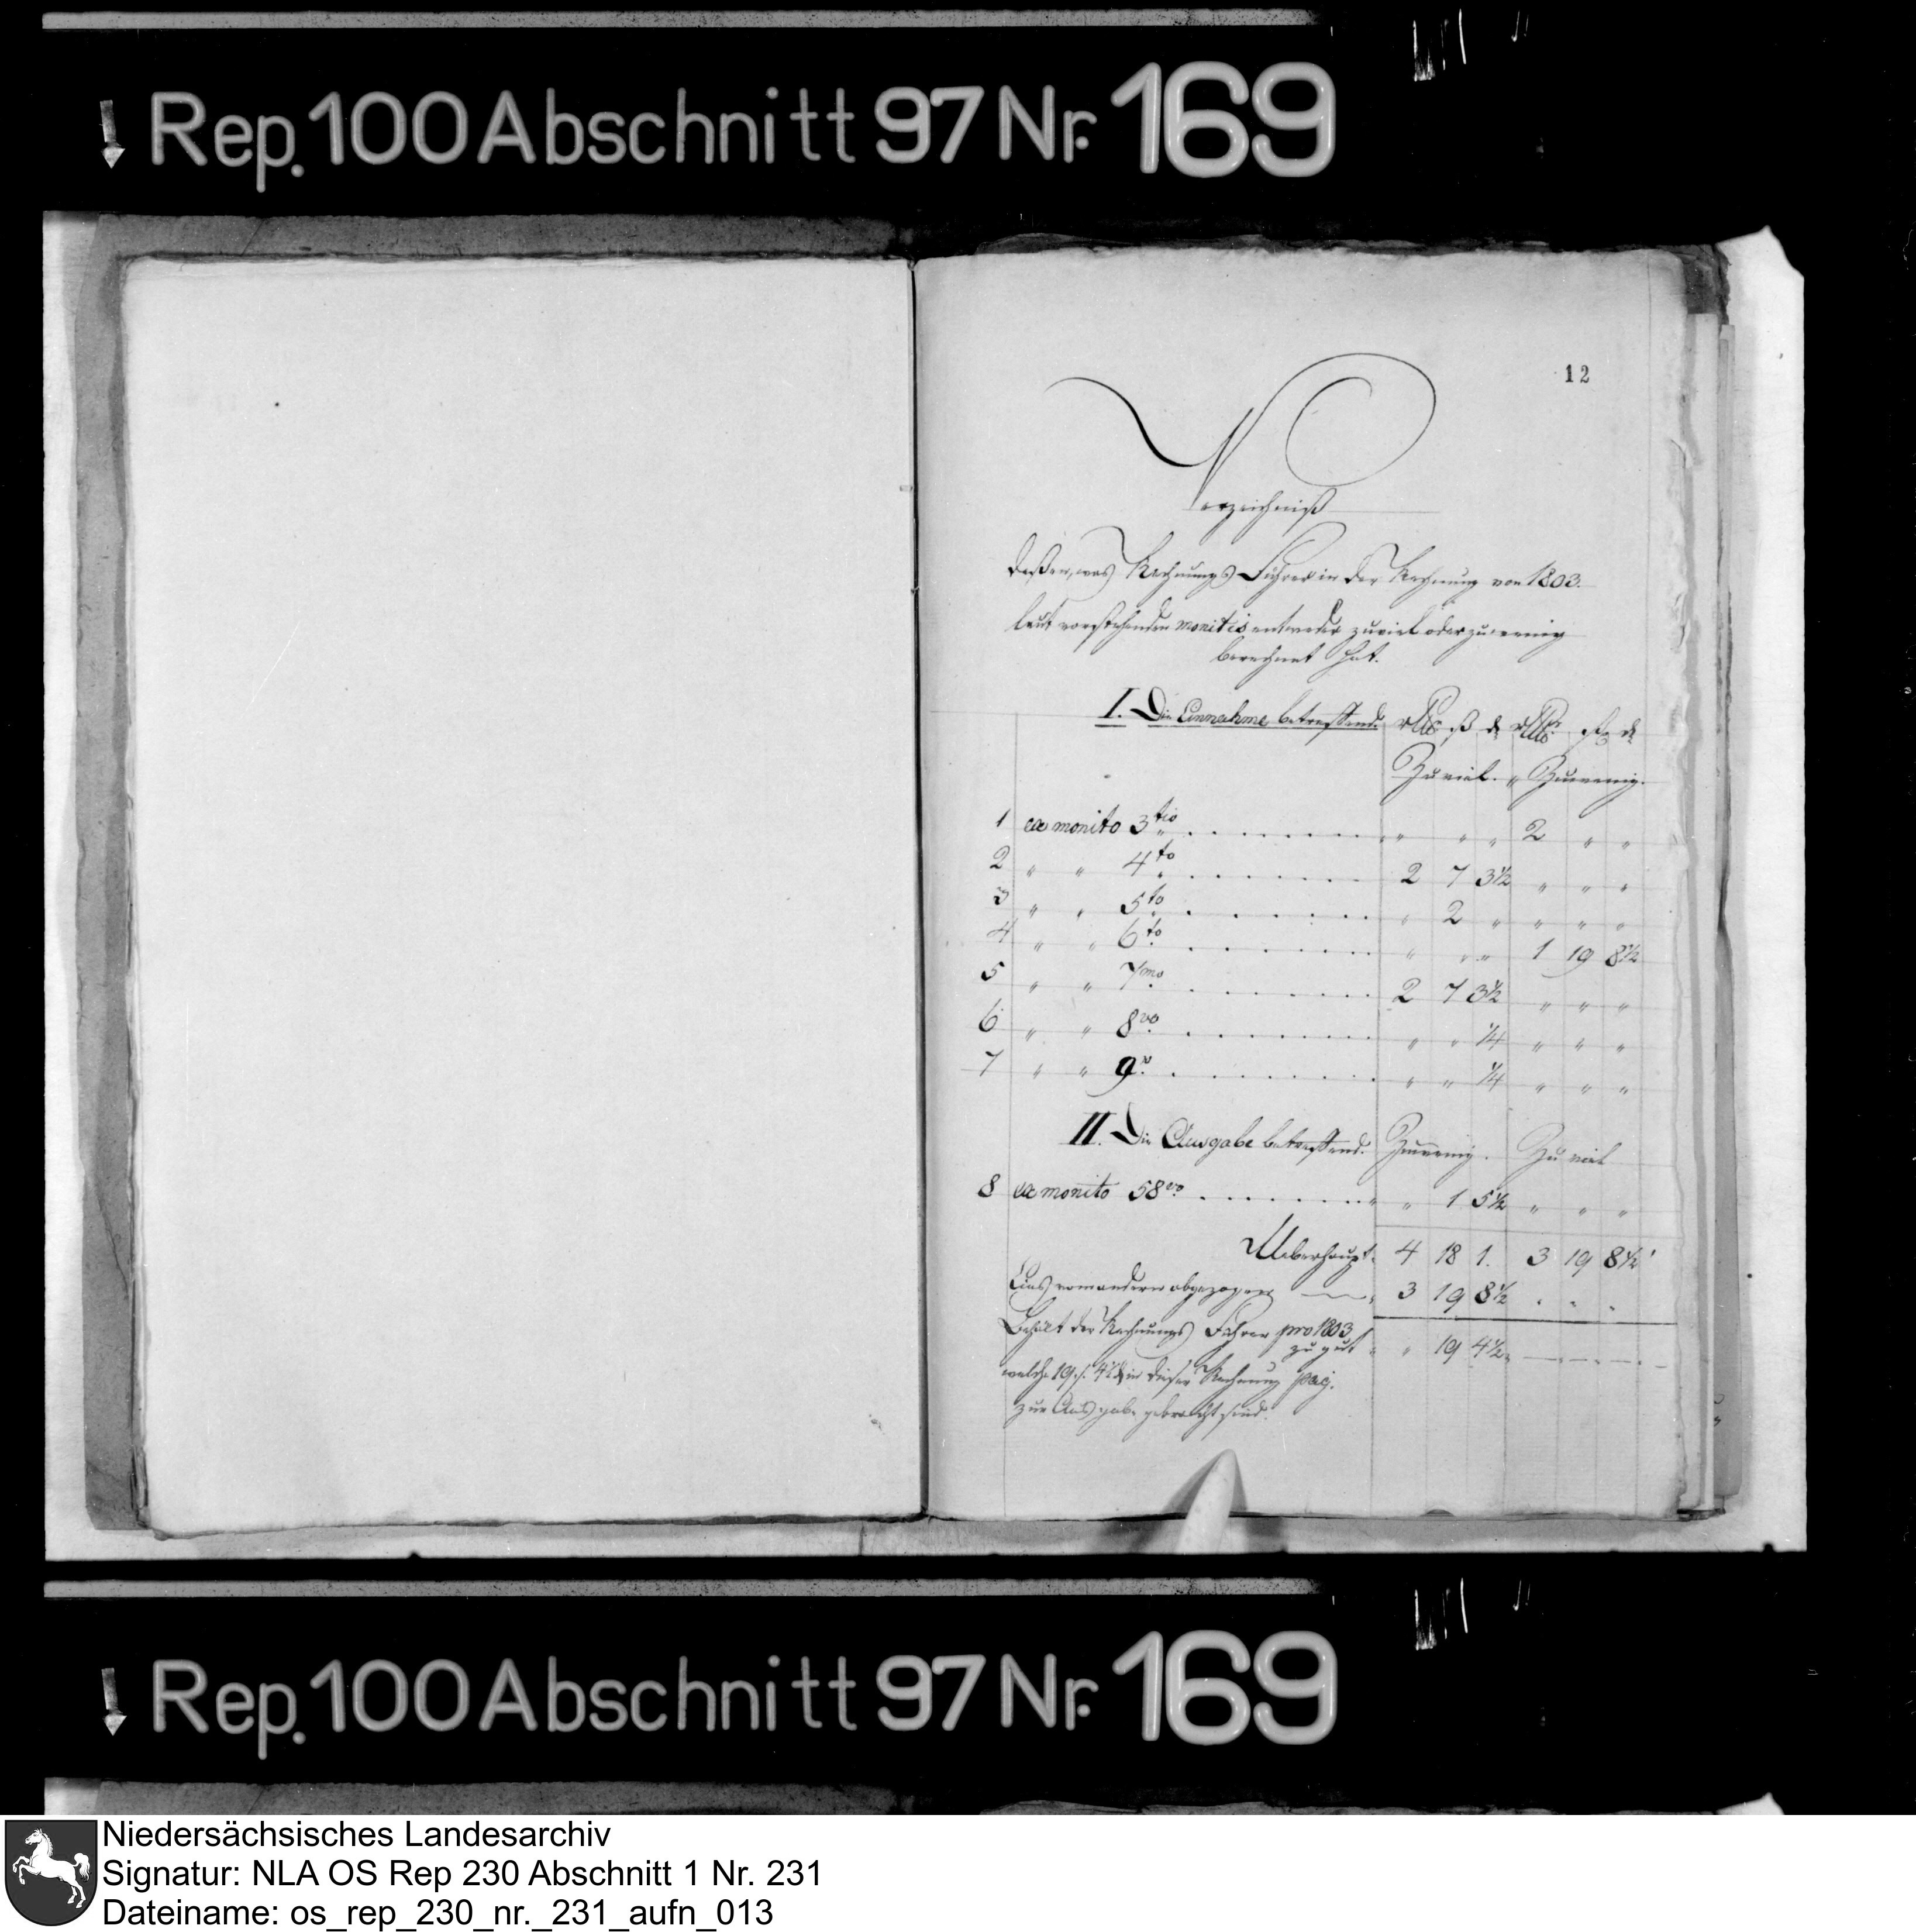 Rep. 100 Abschnitt 97 Nr. 169
12
Verzeichniß
deßen, was Rechnungs Führer in der Rechnung von 1803.
laut vorstehenden monitis entweder zuviel oder zuwenig
berechnet hat.
I. Die Einnahme betreffend. rthlr ß d rthlr ß d
Zu viel. " Zuwenig.
1 ex monito 3tio " " " 2 " "
2 " " 4to 2 7 3½ " " "
3 " " 5to " 2 " " " "
4 " " 6to " " " 1 19 8½
5 " " 7mo 2 7 3½ " " "
6 " " 8vo " " ¼ " " "
7 " " 9o " " ¼ " " "
II. Die Ausgabe betreffend. Zuwenig. Zu viel
8 ex monito 58vo " 1 5½ " " "
Ueberhaupt. 4 18 1. 3 19 8½
Eins vom andern abgezogen 3 19 8½ " " "
Behält der Rechnungs Führer pro 1803
zu gut " 19 4½
welche 19 ß 4½ d in dieser Rechnung pag.
zur Ausgabe gebracht sind.
Rep. 100 Abschnitt 97 Nr. 169
Niedersächsisches Landesarchiv
Signatur: NLA OS Rep 230 Abschnitt 1 Nr. 231
Dateiname: os_rep_230_nr._231_aufn_013